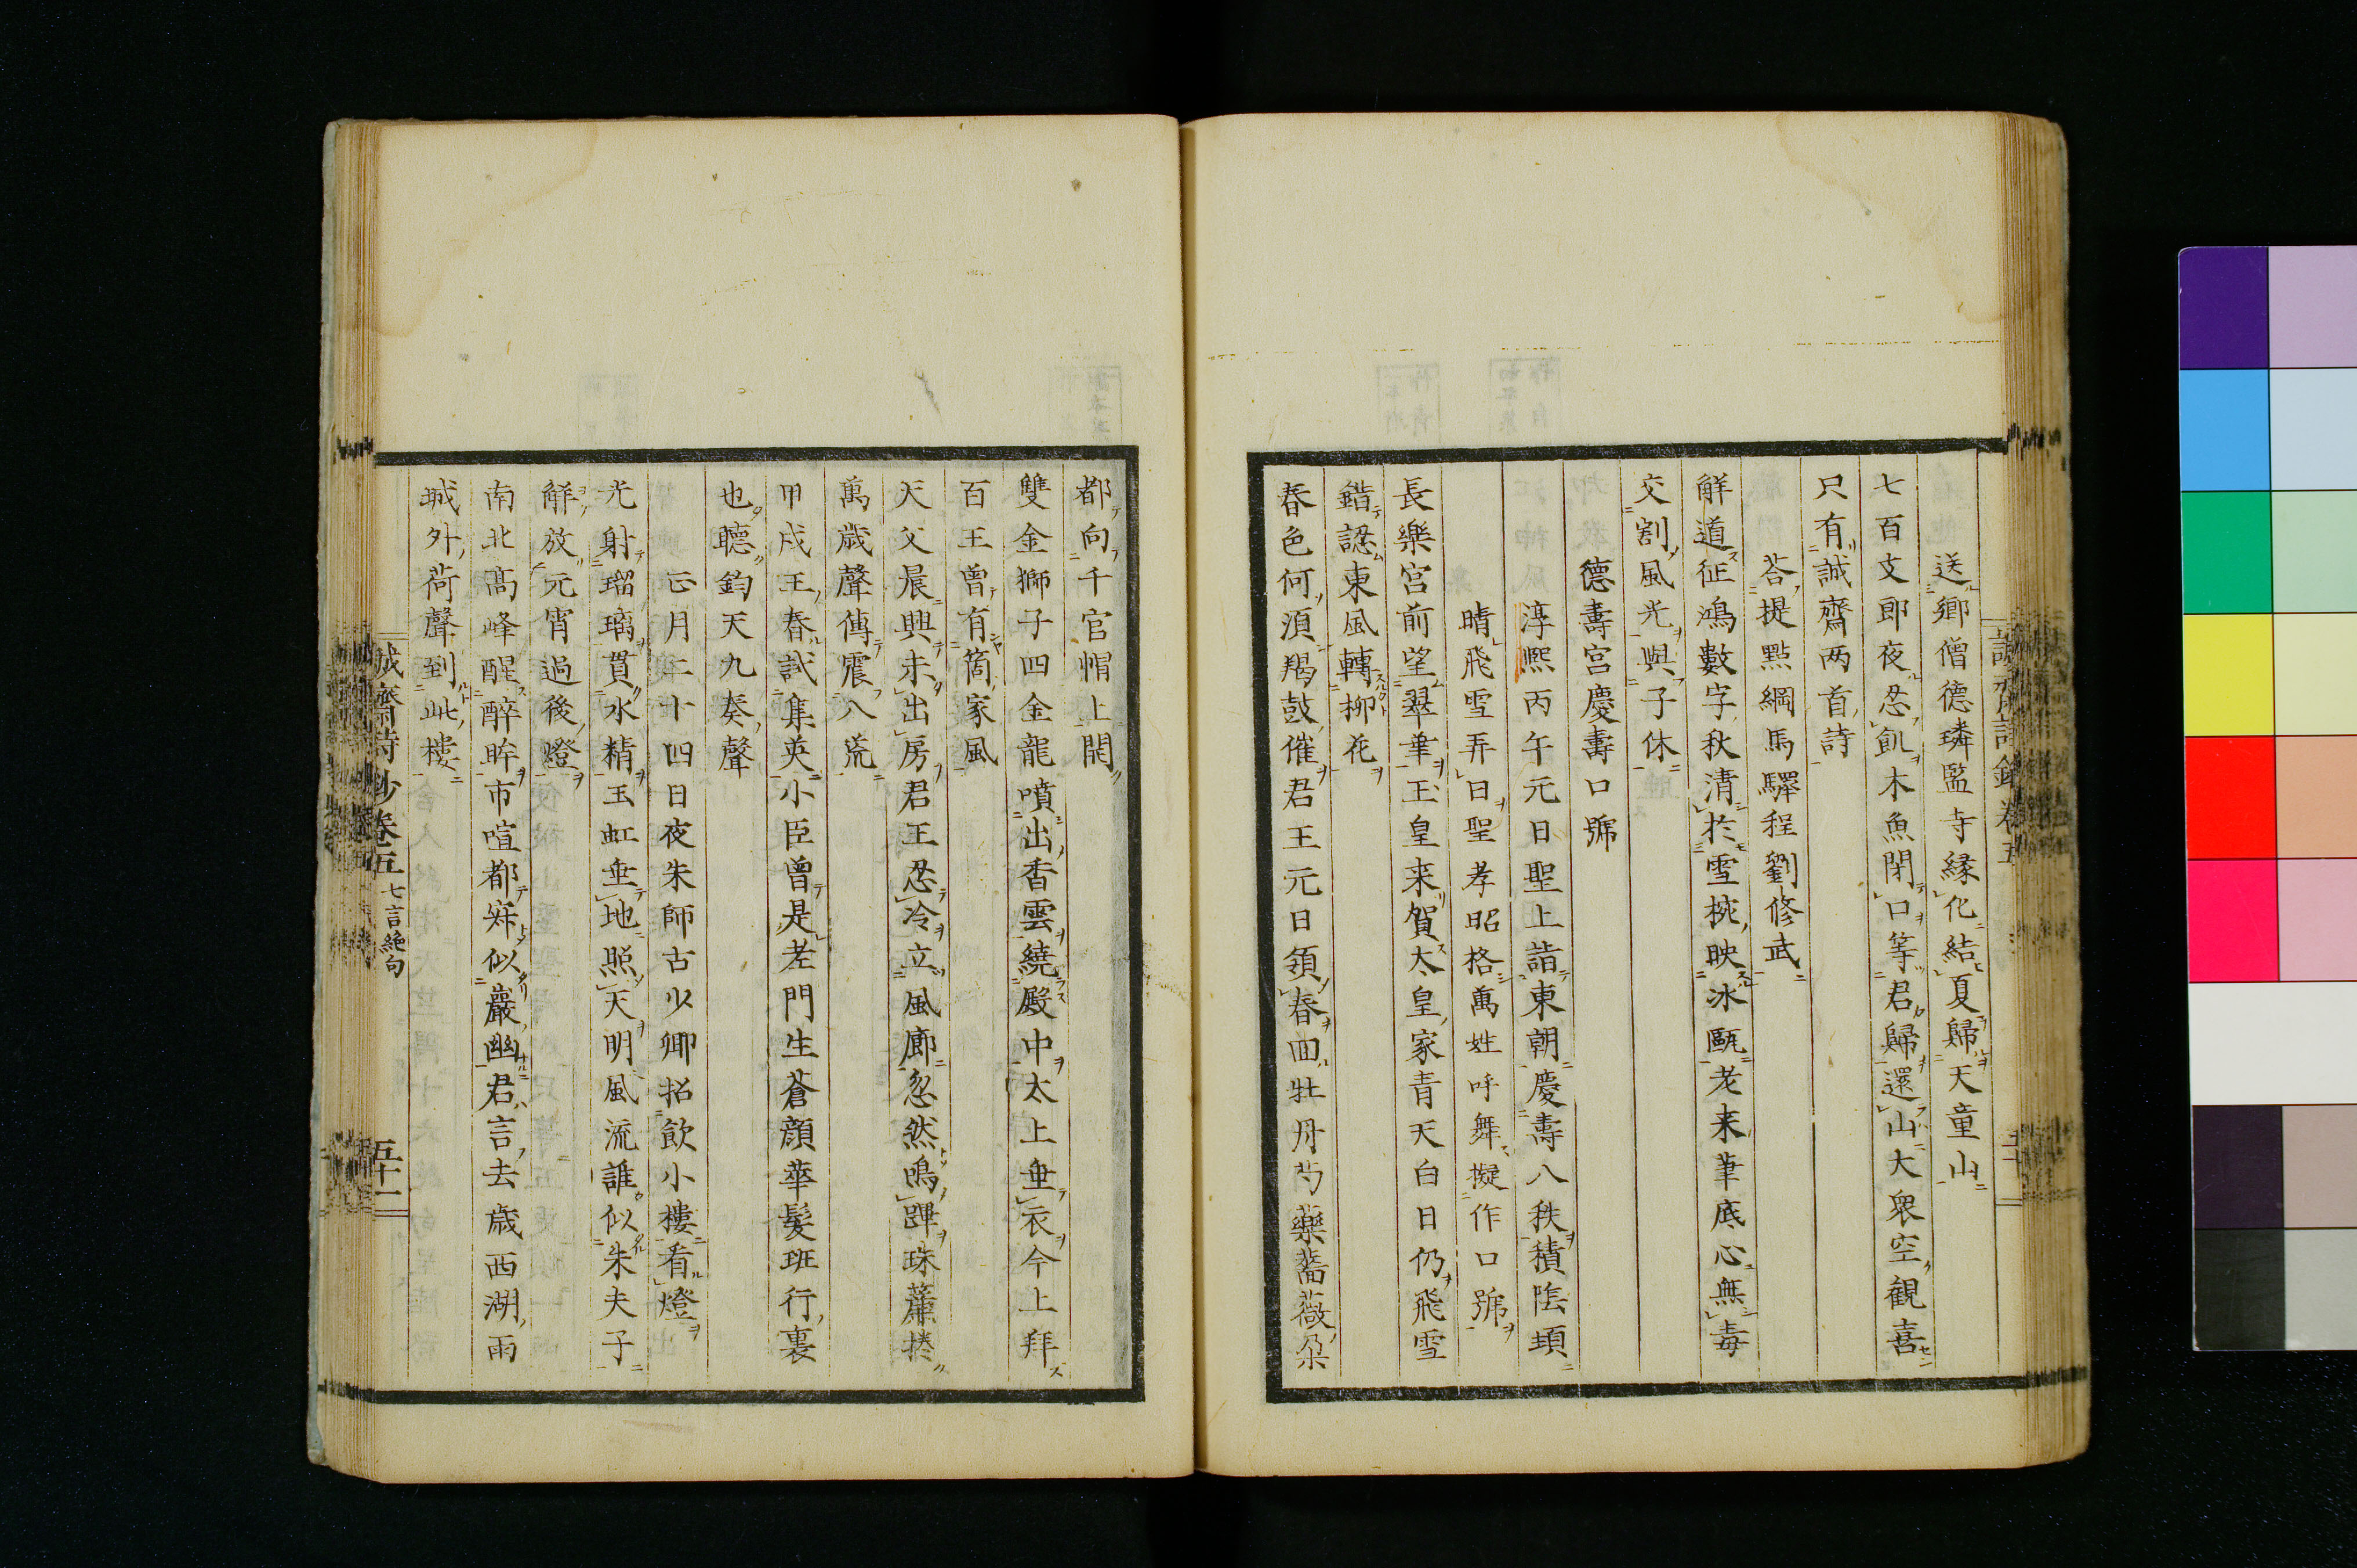 送鄉僧德璘監寺緣化結夏歸天童山
七百支郎夜忍飢木魚閉口等君歸還山大衆空觀喜
只有誠齋两首詩
荅提點綱馬驛程劉修武
解道征鴻數字秋清於雪椀映冰甌老来筆底心無毒
交割風光與子休
德壽宮慶壽口號
淳熙丙午元日聖上詣東朝慶壽八秩積陰頓
晴飛雪弄日聖孝昭格萬姓呼舞擬作口號
長樂宮前望翠華玉皇来賀太皇家青天白日仍飛雪
錯認東風轉柳花
春色何須羯鼓催君王元日領春回牡丹芍藥薔薇朶
都向千官帽上開
雙金獅子四金龍噴出香雲繞殿中太上垂衣今上拜
百王曾有箇家風
天父晨興未出房君王忍冷立風廊忽然鳴蹕珠簾捲
萬歲聲傳震八荒
甲戌王春試集英小臣曾是老門生蒼顔華髮班行裏
也聽鈞天九奏聲
正月二十四日夜朱師古少卿招飲小樓看燈
光射瑠璃貫水精玉虹垂地照天明風流誰似朱夫子
解放元宵過後燈
南北高峰醒醉眸市喧都寐似巖幽君言去歲西湖雨
城外荷聲到此樓
誠齋詩鈔卷五 七言絶句 五十一